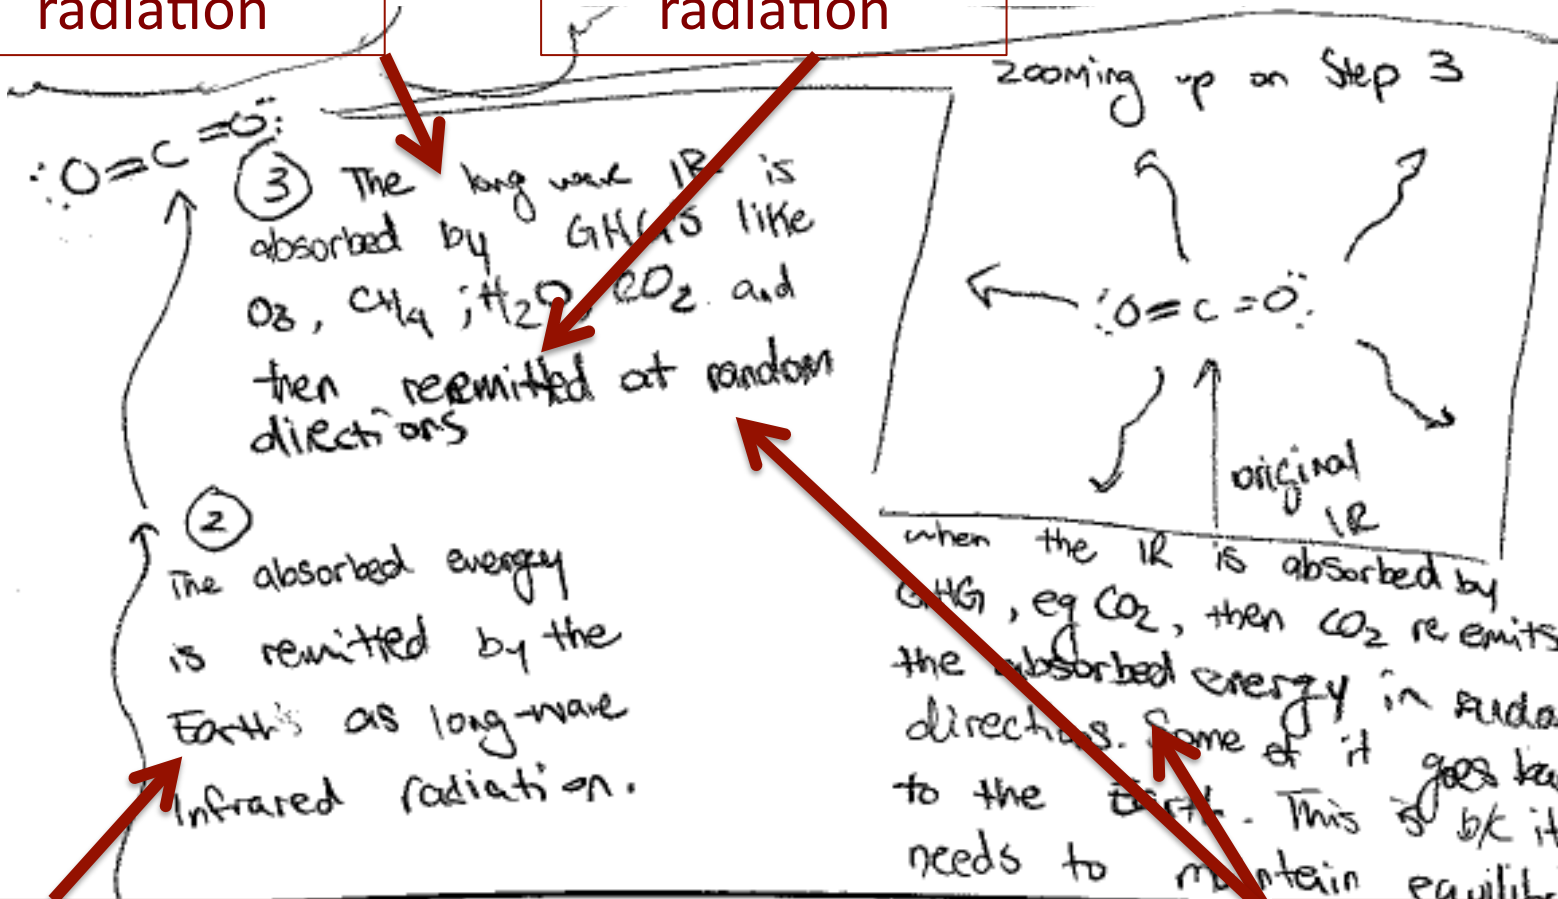 radiation
radiation
zooming up on Step 3
:O=C=O:
③ The long wave IR is
absorbed by GHG's like
O3, CH4, H2O, CO2 and
then reemitted at random
directions
②
The absorbed energy
is remitted by the
Earth's as long-wave
Infrared radiation.
:O=C=O:
original
IR
when the IR is absorbed by
GHG, eg CO2, then CO2 re emits
the absorbed energy in
directions. Some of it goes
to the Earth. This is b/c it
needs to maintain